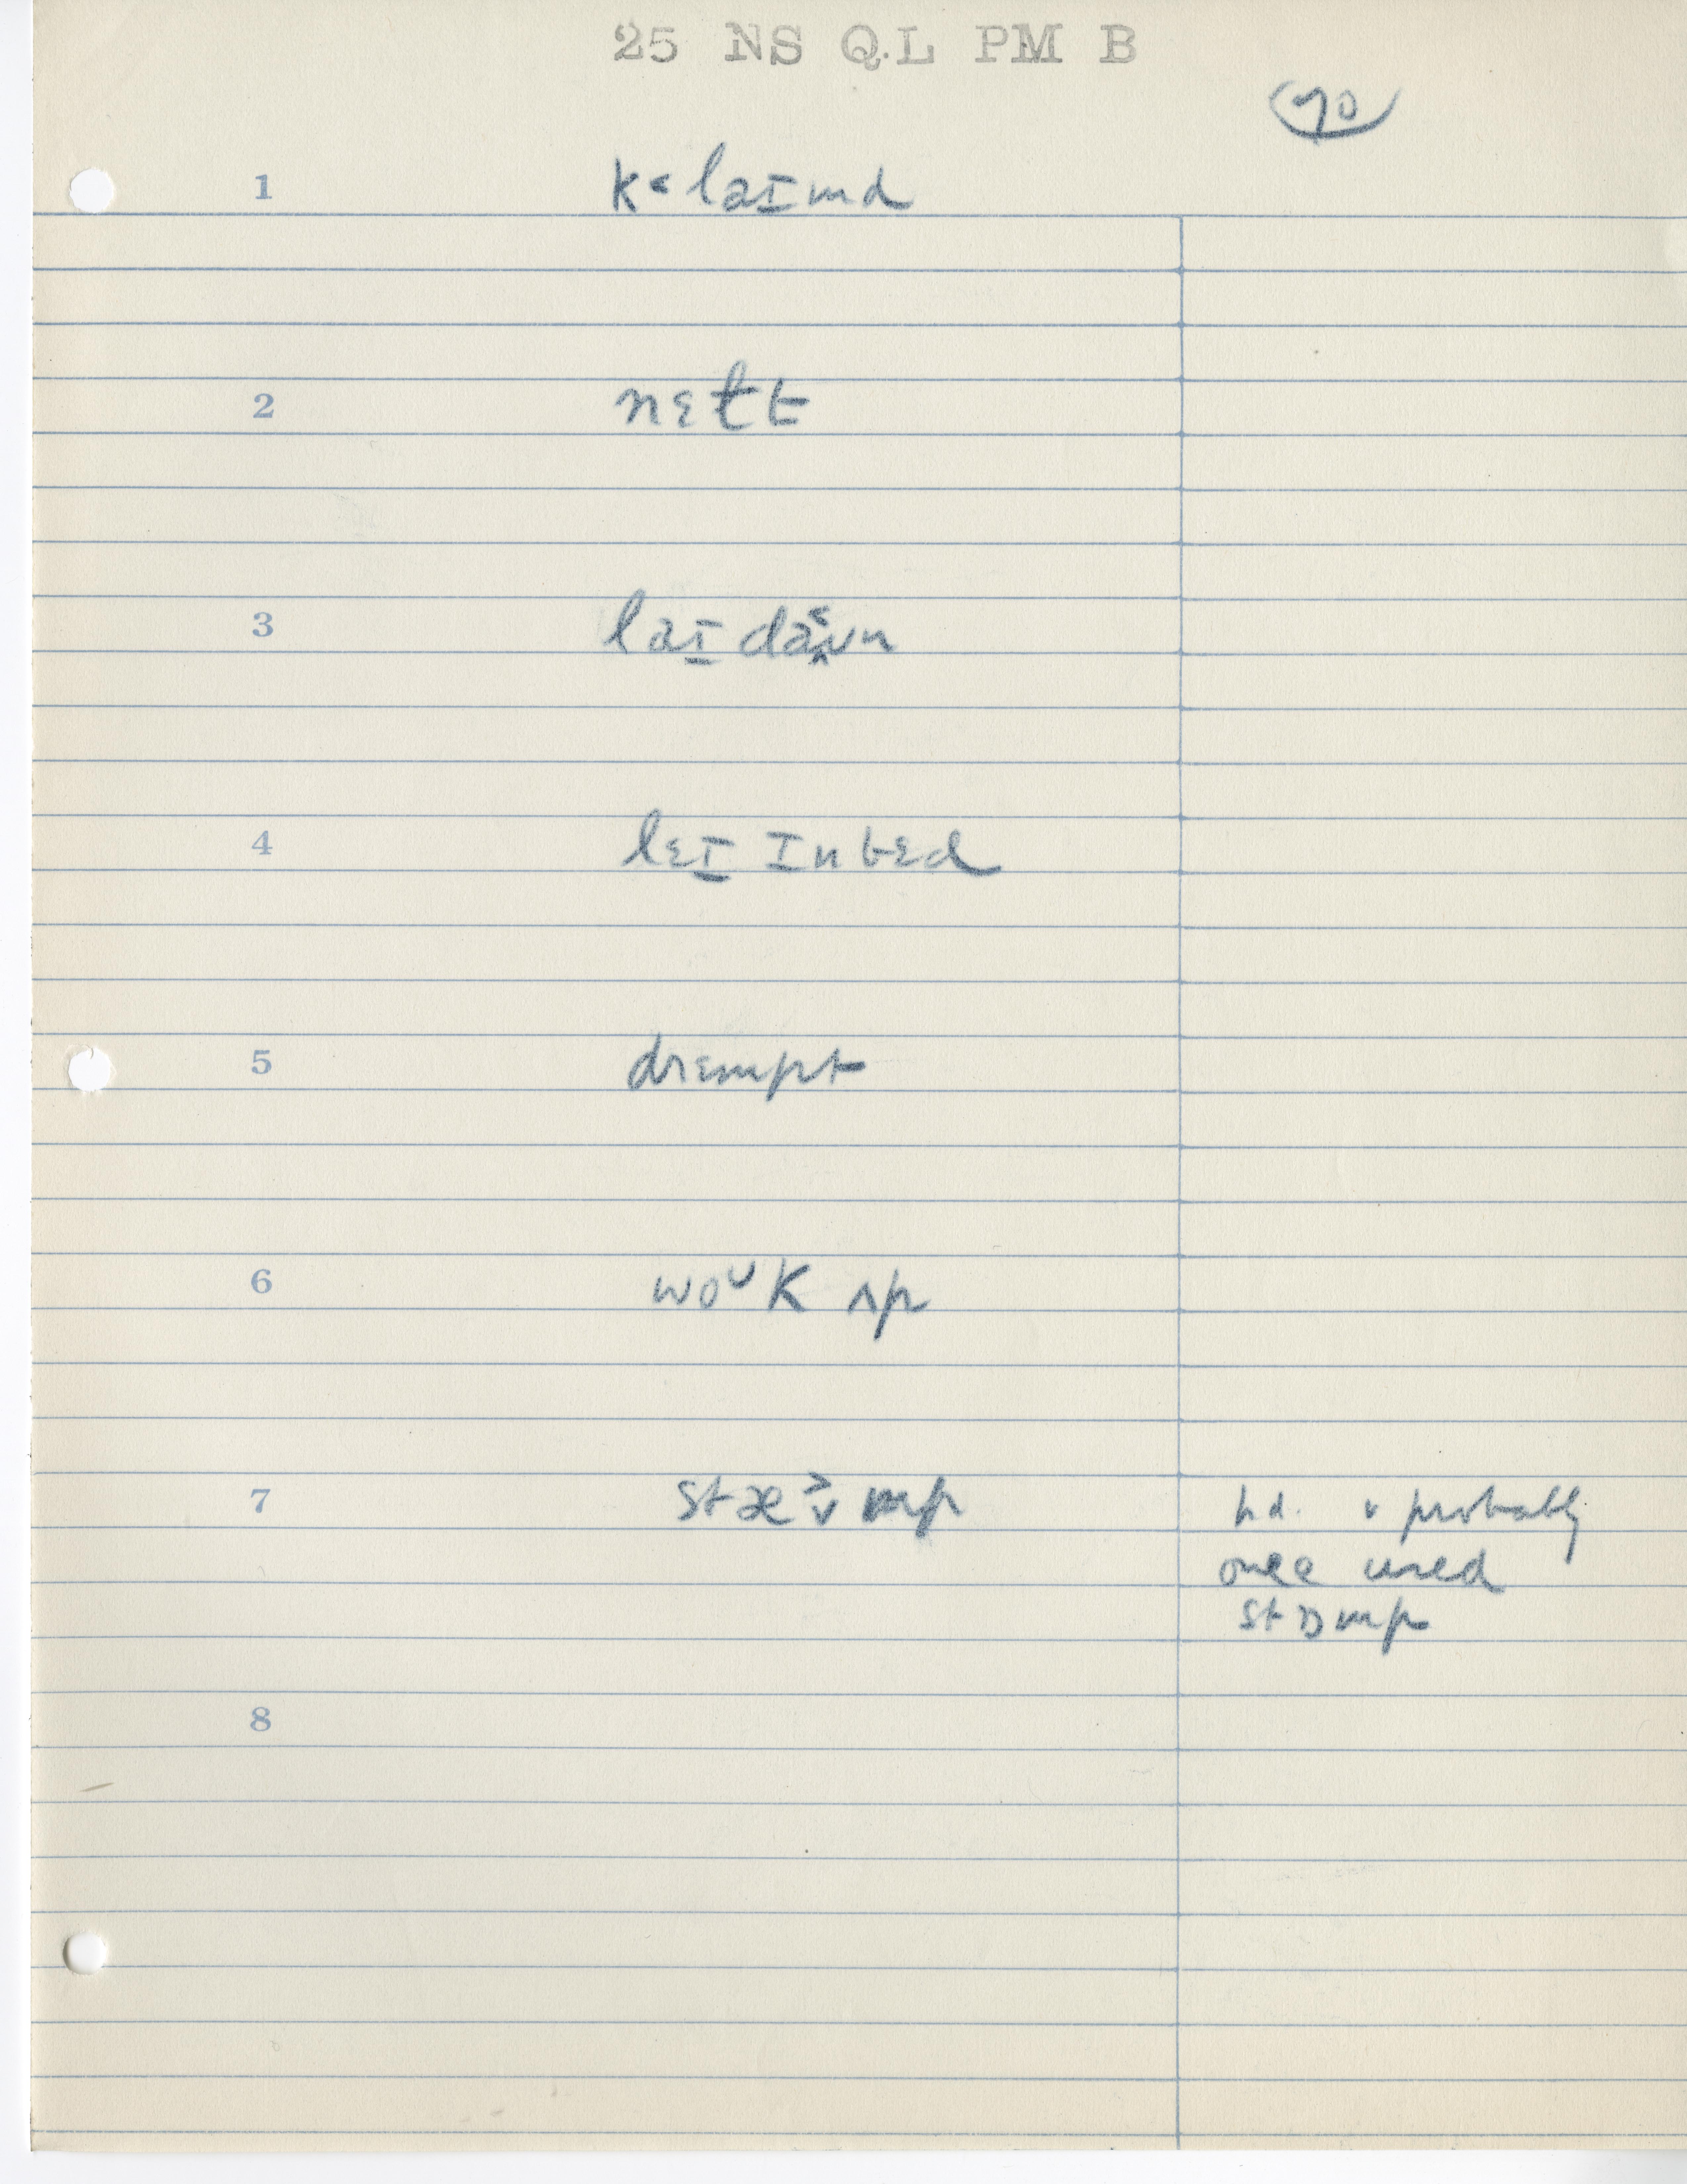 25 NS Q.L PM B
70
1 k˂laɪmd
2 nɛt̬t
3 laɪ̠ daʊn
4 lɛɪ̠ ɪn bɛd
5 drɛmpt
6 woᶷk ʌp
7 stæmp hd. v probably
once used
stɒmp
8